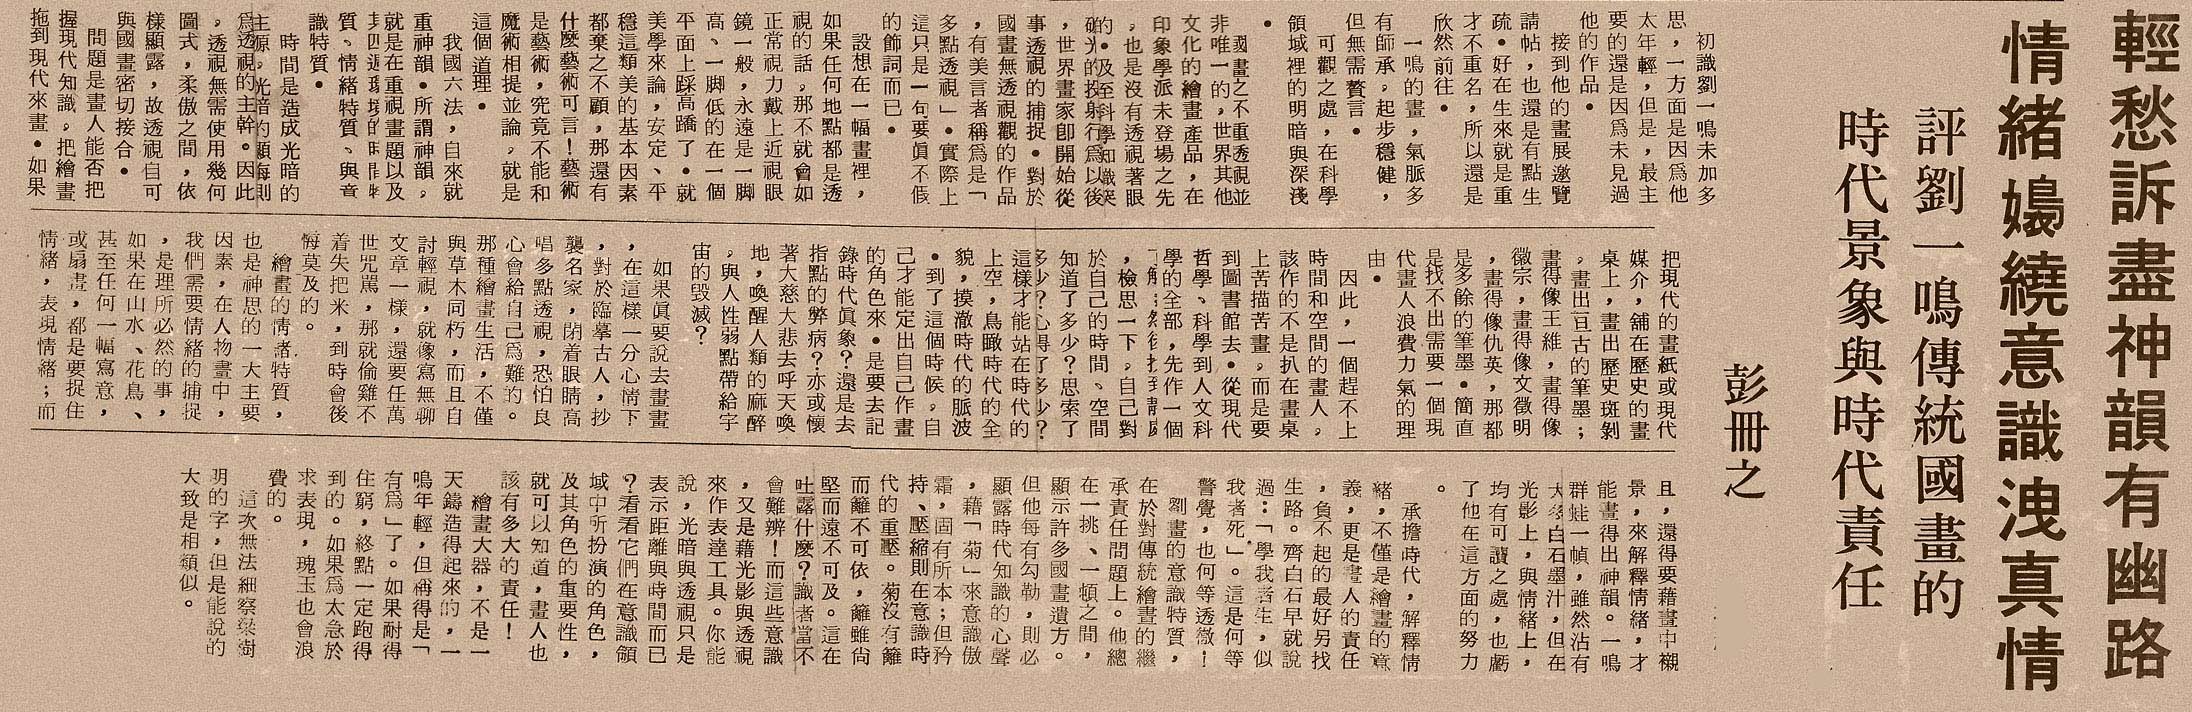 輕愁訴盡神韻有幽路
情緒嬝繞意識洩真情
評劉一鳴傳統國畫的
時代景象與時代責任
彭冊之
初識劉一鳴未加多
思，一方面是因爲他
太年輕，但是，最主
要的還是因爲未見過
他的作品。
接到他的畫展邀覽
請帖，也還是有點生
疏。好在生來就是重
才不重名，所以還是
欣然前往。
一鳴的畫，氣脈多
有師承，起步穩健，
但無需贅言。
可觀之處，在科學
領域裡的明暗與深淺
。
國畫之不重透視並
非唯一的，世界其他
文化的繪畫產品，在
印象學派未登場之先
，也是沒有透視著眼
的。及至科學知識突
破光的投射行爲以後
，世界畫家卽開始從
事透視的捕捉。對於
國畫無透視觀的作品
，有美言者稱爲是「
多點透視」。實際上
這只是一句要眞不假
的飾詞而已。
設想在一幅畫裡，
如果任何地點都是透
視的話，那不就會如
正常視力戴上近視眼
鏡一般，永遠是一脚
高、一脚低的在一個
平面上踩高蹺了。就
美學來論，安定、平
穩這類美的基本因素
都棄之不顧，那還有
什麽藝術可言！藝術
是藝術，究竟不能和
魔術相提並論，就是
這個道理。
我國六法，自來就
重神韻。所謂神韻，
就是在重視畫題以及
其四週環境的時間特
質、情緒特質、與意
識特質。
時間是造成光暗的
主源，光暗的顯晦則
爲透視的主幹。因此
，透視無需使用幾何
圖式，柔傲之間，依
樣顯露，故透視自可
與國畫密切接合。
問題是畫人能否把
握現代知識，把繪畫
拖到現代來畫。如果
把現代的畫紙或現代
媒介，舖在歷史的畫
桌上，畫出歷史斑剝
，畫出亘古的筆墨；
畫得像王維，畫得像
徽宗，畫得像文徵明
，畫得像仇英，那都
是多餘的筆墨。簡直
是找不出需要一個現
代畫人浪費力氣的理
由。
因此，一個趕不上
時間和空間的畫人，
該作的不是扒在畫桌
上苦描苦畫，而是要
到圖書館去。從現代
哲學、科學到人文科
學的全部，先作一個
了解；然後找到靜處
，檢思一下，自己對
於自己的時間、空間
知道了多少？思索了
多少？心得了多少？
這樣才能站在時代的
上空，鳥瞰時代的全
貌，摸澈時代的脈波
。到了這個時候，自
己才能定出自己作畫
的角色來。是要去記
錄時代眞象？還是去
指點的弊病？亦或懷
著大慈大悲去呼天喚
地，喚醒人類的麻醉
，與人性弱點帶給宇
宙的毀滅？
如果眞要說去畫畫
，在這樣一分心情下
，對於臨摹古人，抄
襲名家，閉着眼睛高
唱多點透視，恐怕良
心會給自己爲難的。
那種繪畫生活，不僅
與草木同朽，而且自
討輕視，就像寫無聊
文章一樣，還要任萬
世咒罵，那就偷雞不
着失把米，到時會後
悔莫及的。
繪畫的情諸特質，
也是神思的一大主要
因素，在人物畫中，
我們需要情緒的捕捉
，是理所必然的事，
如果在山水、花鳥、
甚至任何一幅寫意，
或扇畫，都是要捉住
情緒，表現情緒；而
且，還得要藉畫中襯
景，來解釋情緒，才
能畫得出神韻。一鳴
群蛙一幀，雖然沾有
大多白石墨汁，但在
光影上，與情緒上，
均有可讀之處，也虧
了他在這方面的努力
。
承擔時代，解釋情
緒，不僅是繪畫的意
義，更是畫人的責任
，負不起的最好另找
生路。齊白石早就說
過：「學我者生，似
我者死」。這是何等
警覺，也何等透澈！
劉畫的意識特質，
在於對傳統繪畫的繼
承責任問題上。他總
在一挑、一頓之間，
顯示許多國畫遺方。
但他每有勾勒，則必
顯露時代知識的心聲
，藉「菊」來意識傲
霜，固有所本；但矜
持、壓縮則在意識時
代的重壓。菊沒有籬
而籬不可依，籬雖尙
堅而遠不可及。這在
吐露什麽？識者當不
會難辨！而這些意識
，又是藉光影與透視
來作表達工具。你能
說，光暗與透視只是
表示距離與時間而已
？看看它們在意識領
域中所扮演的角色，
及其角色的重要性，
就可以知道，畫人也
該有多大的責任！
繪畫大器，不是一
天鑄造得起來的，一
鳴年輕，但稱得是「
有爲」了。如果耐得
住窮，終點一定跑得
到的。如果爲太急於
求表現，瑰玉也會浪
費的。
這次無法細察梁樹
玥的字，但是能說的
大致是相類似。